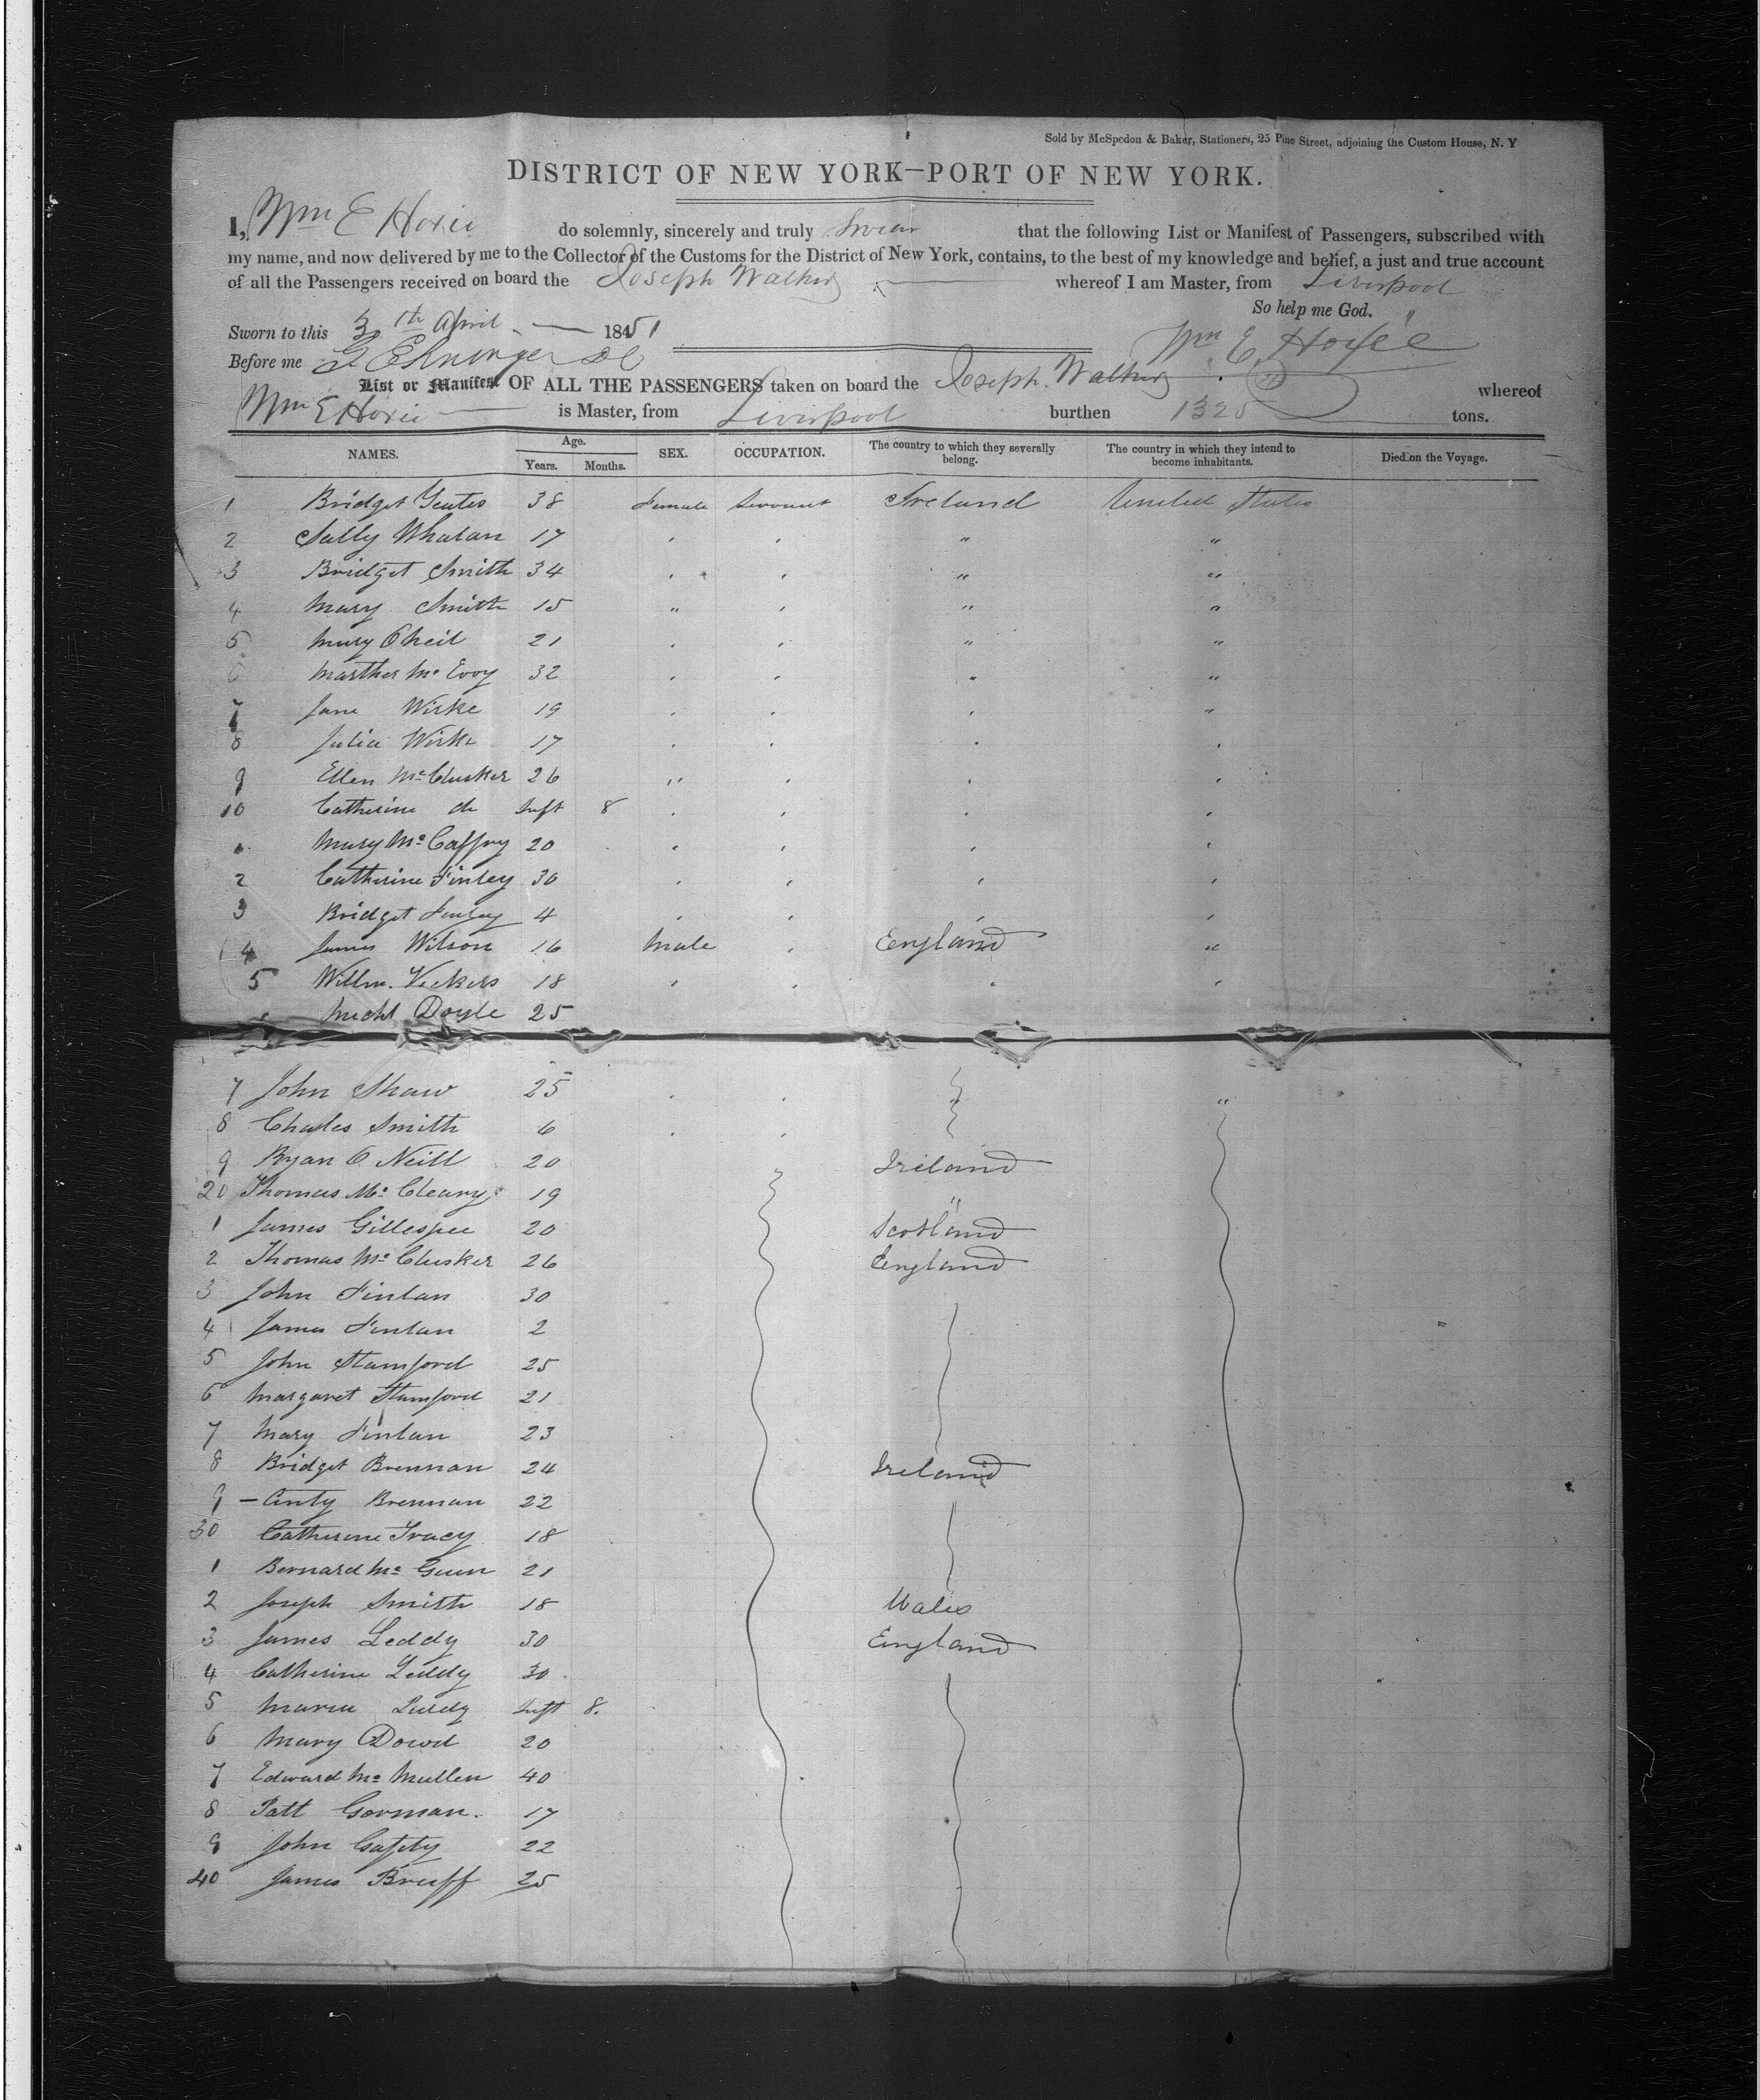 Sold by McSpedon & Baker, Stationers, 25 Pine Street, adjoining the Custom House, N. Y
DISTRICT OF NEW YORK—PORT OF NEW YORK.
I, Wm E Hoxie do solemnly, sincerely and truly Swear that the following List or Manifest of Passengers, subscribed with
my name, and now delivered by me to the Collector of the Customs for the District of New York, contains, to the best of my knowledge and belief, a just and true account
of all the Passengers received on board the Joseph Walker whereof I am Master, from Liverpool
So help me God.
Sworn to this 3th April 1851
Wm E. Hoxie
Before me
List or Manifest OF ALL THE PASSENGERS taken on board the Joseph Walker whereof
Wm E Hoxie is Master, from Liverpool burthen 1325 tons.
NAMES. Age. Years. Months. SEX. OCCUPATION. The country to which they severally belong. The country in which they intend to become inhabitants. Died on the Voyage.
1 Bridget Yeates 38 Female Servant Ireland United States
2 Sally Whalan 17 " " " "
3 Bridget Smith 34 " " " "
4 Mary Smith 15 " " " "
5 Mary ONeil 21 " " " "
6 Marther Mc Evoy 32 " " " "
7 Jane Wirke 19 " " " "
8 Julia Wirke 17 " " " "
9 Ellen McClusker 26 " " " "
10 Catherine do Inft 8 " " " "
Mary McCaffry 20 " " " "
2 Catherine Finley 30 " " " "
3 Bridget Finley 4 " " " "
4 James Wilson 16 Male " England "
5 Willm. Vickers 18 " " " "
Michl Doyle 25
7 John Shaw 25 " " " "
8 Charles Smith 6 " "
9 Bryan O Neill 20 Ireland
20 Thomas Mc Cleary 19 "
1 James Gillespee 20 Scotland
2 Thomas Mc Clusker 26 England
3 John Finlan 30
4 James Finlan 2
5 John Stamford 25
6 Margaret Stamford 21
7 Mary Finlan 23
8 Bridget Brennan 24 Ireland
9 — Anty Brennan 22
30 Catherine Tracy 18
1 Bernard Mc Guin 21
2 Joseph Smith 18 Wales
3 James Leddy 30 England
4 Catherine Leddy 30
5 Maria Leddy Inft 8.
6 Mary Dowd 20
7 Edward Mc Mullen 40
8 Patt Gorman. 17
9 John Gafety 22
40 James Bruff 25